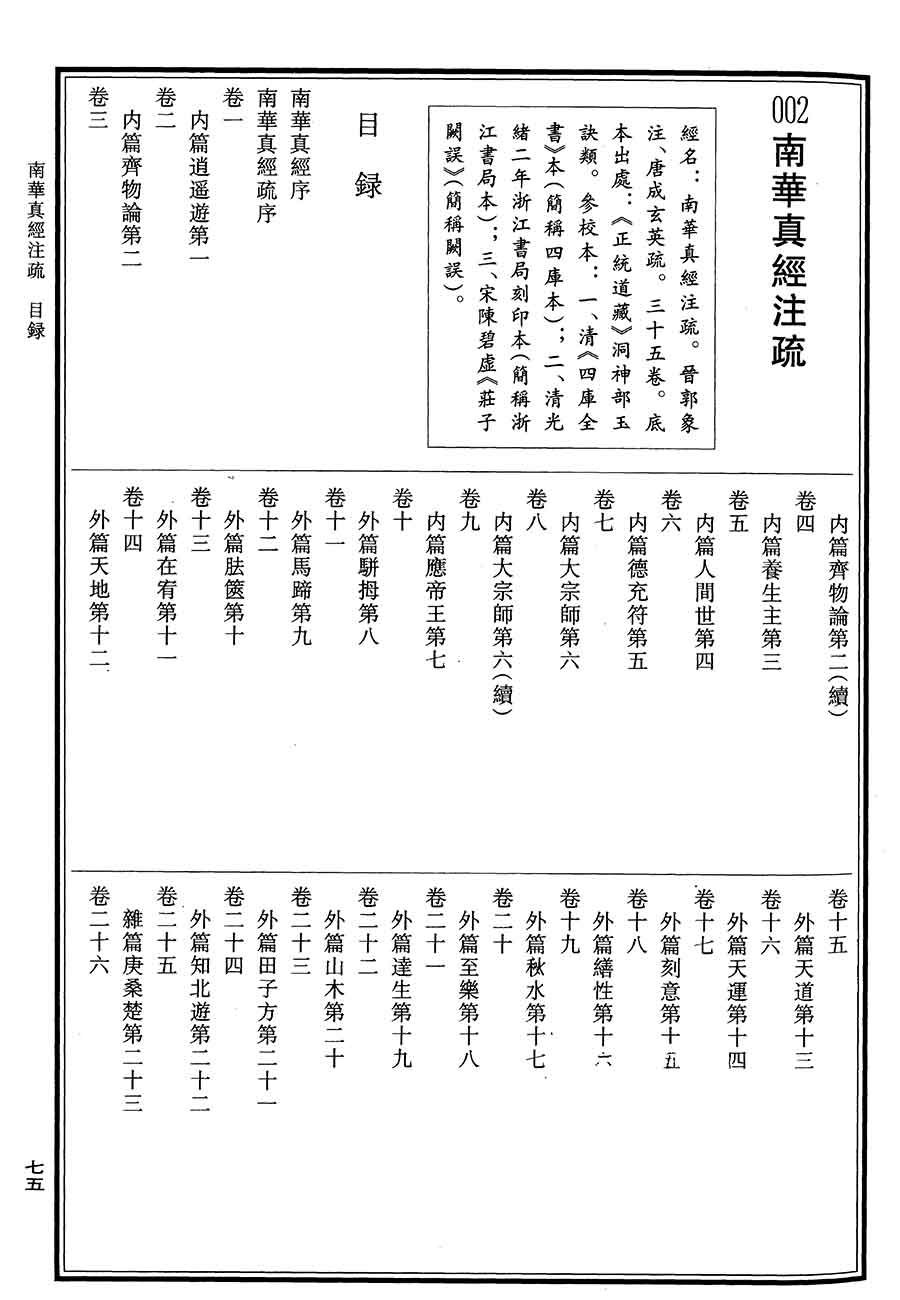 002南華真經注疏
經名：南華真經注疏。晉郭象
注、唐成玄英疏。三十五卷。底
本出處：《正統道藏》洞神部玉
訣類。參校本：一、清《四庫全
書》本(簡稱四庫本)；二、清光
緒二年浙江書局刻印本(簡稱浙
江書局本)；三、宋陳碧虛《莊子
闕誤》(簡稱闕誤)。
目録
南華真經序
南華真經疏序
卷一
内篇逍遥遊第一
卷二
内篇齊物論第二
卷三
内篇齊物論第二(續)
卷四
内篇養生主第三
卷五
内篇人間世第四
卷六
内篇德充符第五
卷七
内篇大宗師第六
卷八
内篇大宗師第六(續)
卷九
内篇應帝王第七
卷十
外篇駢拇第八
卷十一
外篇馬蹄第九
卷十二
外篇胠篋第十
卷十三
外篇在宥第十一
卷十四
外篇天地第十二
卷十五
外篇天道第十三
卷十六
外篇天運第十四
卷十七
外篇刻意第十五
卷十八
外篇繕性第十六
卷十九
外篇秋水第十七
卷二十
外篇至樂第十八
卷二十一
外篇達生第十九
卷二十二
外篇山木第二十
卷二十三
外篇田子方第二十一
卷二十四
外篇知北遊第二十二
卷二十五
雜篇庚桑楚第二十三
卷二十六
南華真經注疏 目録
七五